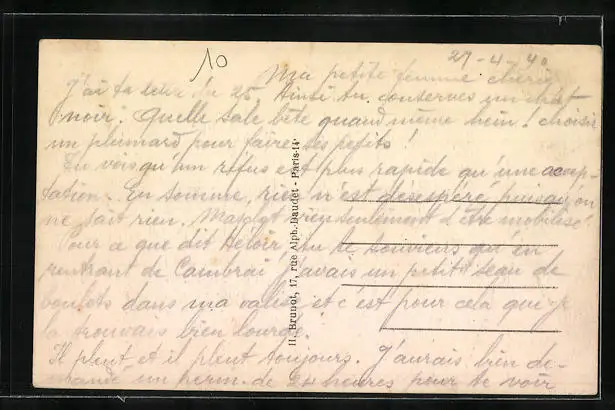 10
27-4-40
Ma petite femme chérie
J'ai ta lettre du 25. Ainsi tu conserves un chat
noir. Quelle sale bête quand même hein! choisir
un plumard pour faire ses petits!
Tu vois qu'un refus est plus rapide qu'une accep-
tation. En somme, rien n'est désespéré puisqu'on
ne sait rien. seulement d'être mobilisé.
Pour ce que dit tu te souviens qu'en
rentrant de Cambrai j'avais un petit seau de
boulets dans ma valise et c'est pour cela que je
la trouvais bien lourde.
Il pleut et il pleut toujours. J'aurais bien de-
mandé un perm. de 24 heures pour te voir
H. Brunot, 17, rue Alph.-Daudet - Paris-14e